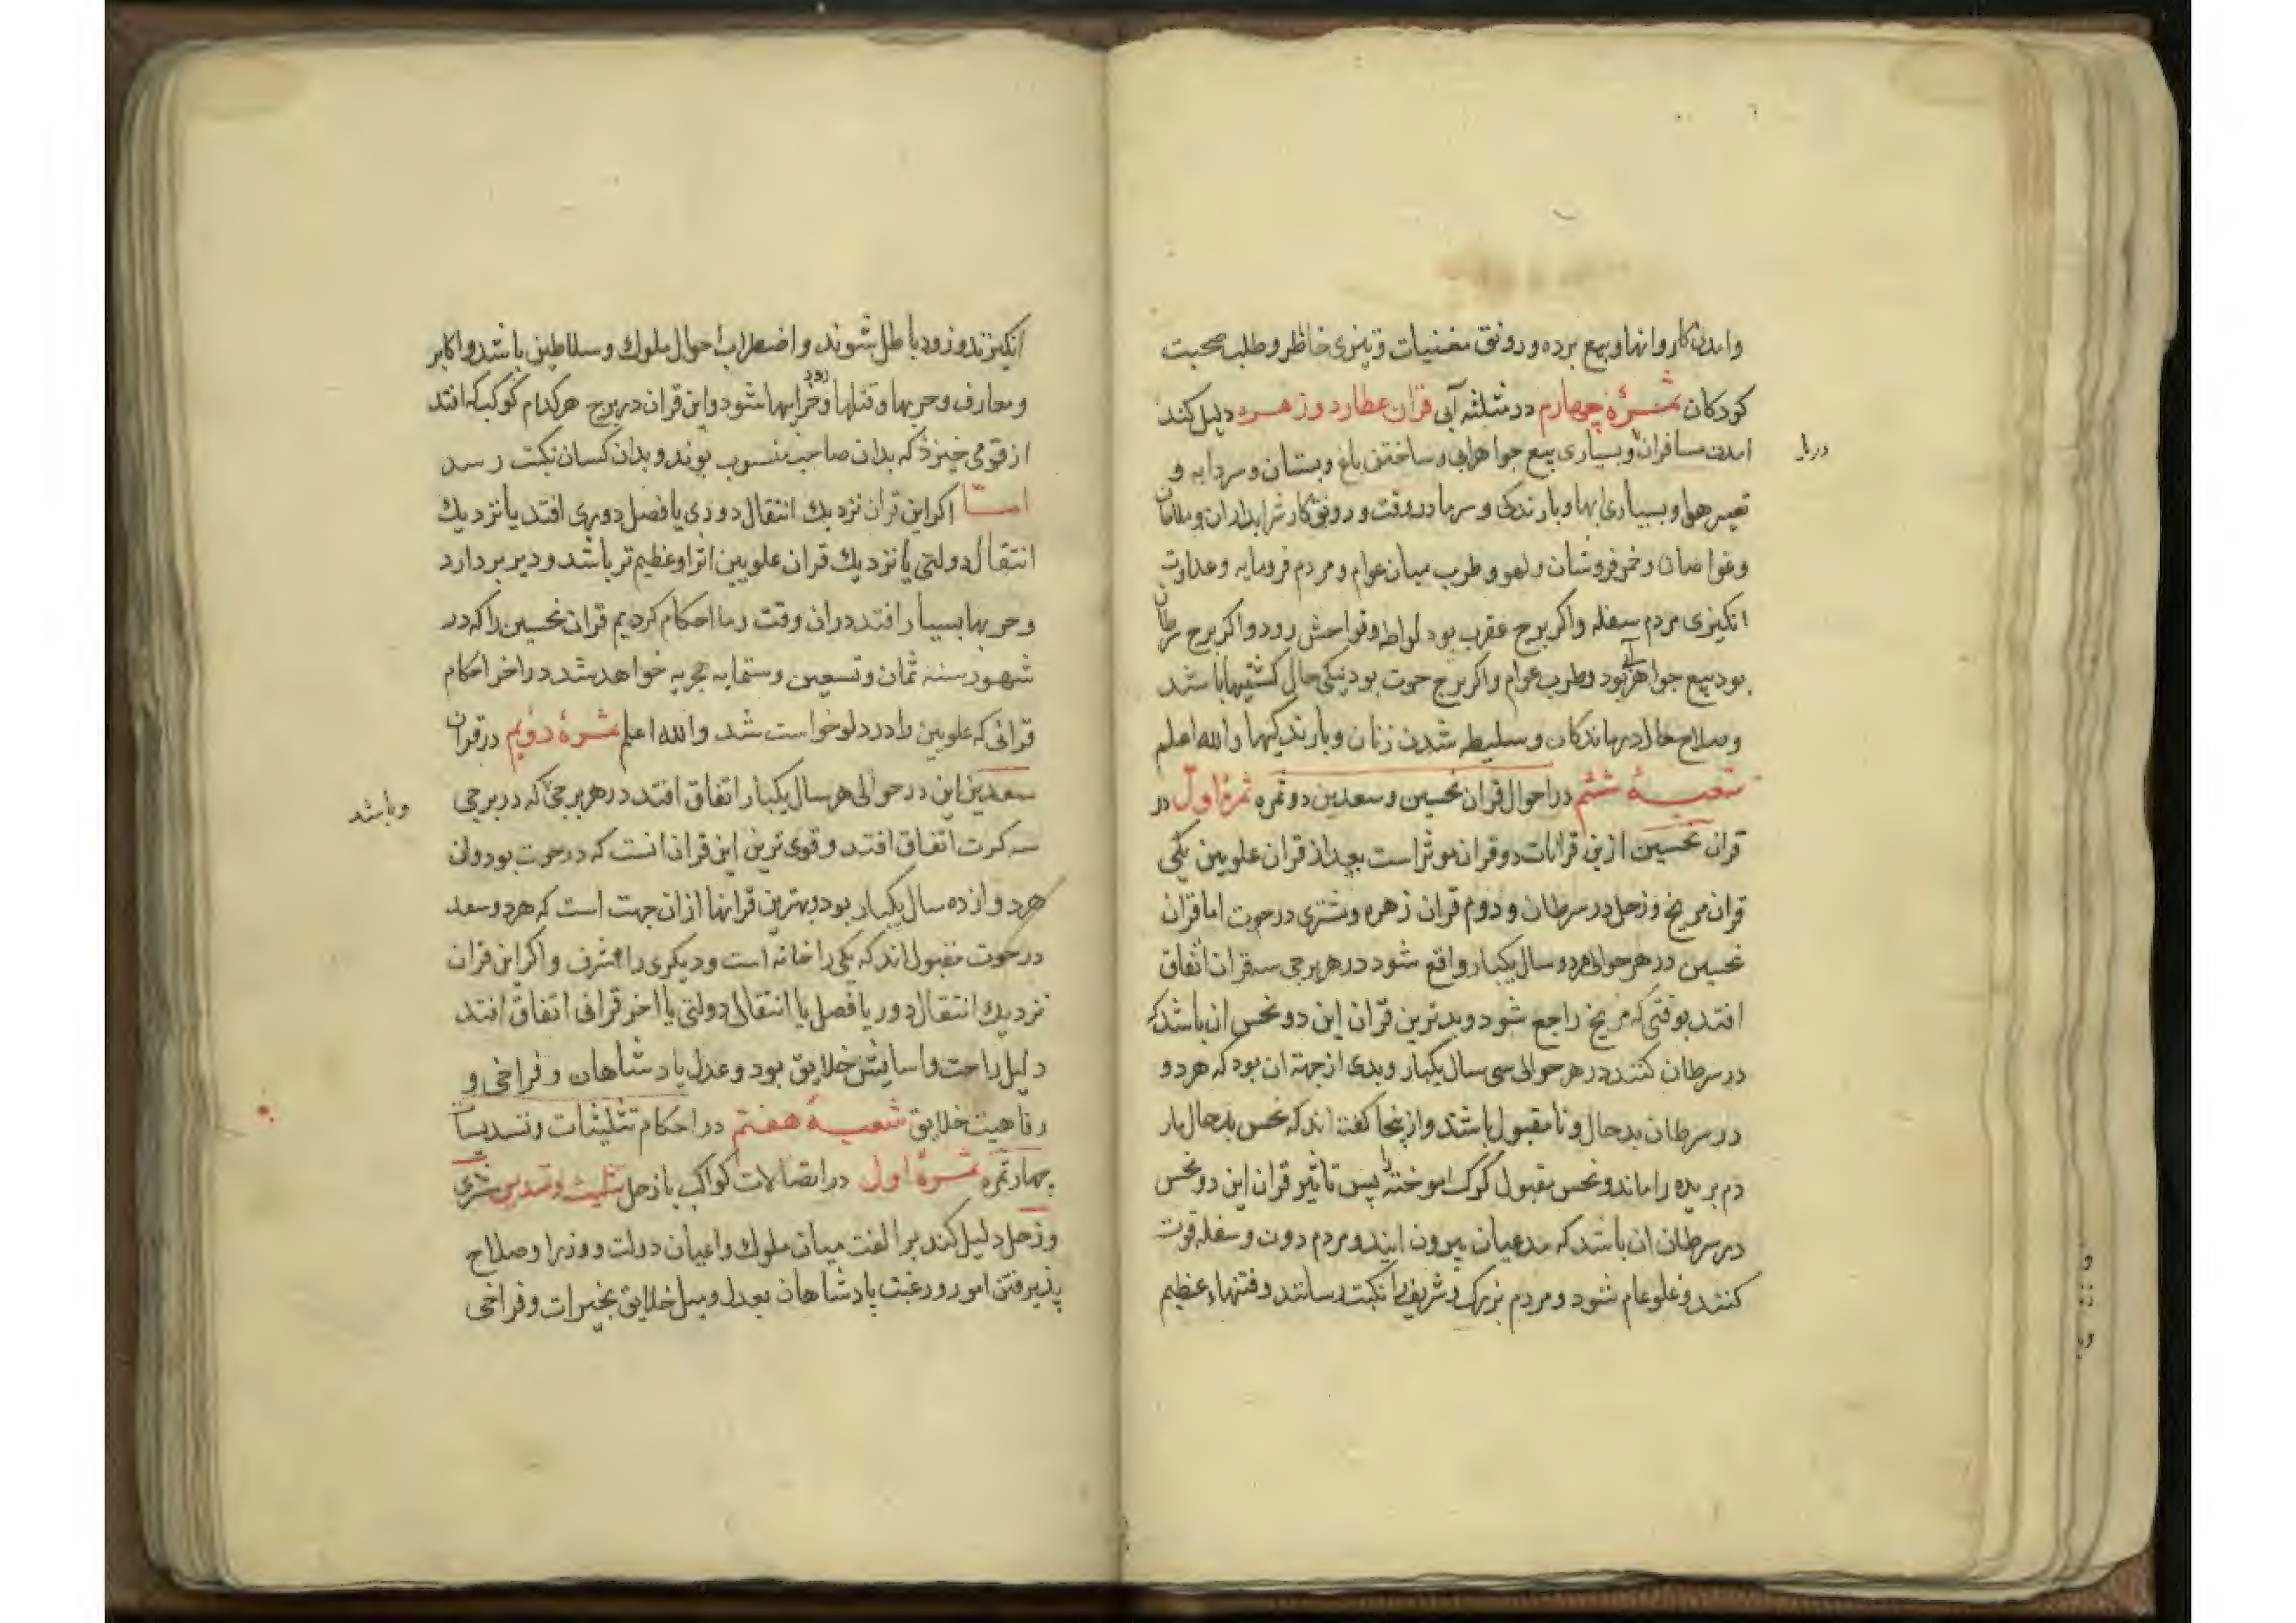 وامدن کاروانها و بیع برده و رونق مغنیات و تیزی خاطر و طلب صحبت
کودکان ثمرهٔ چهارم در مثلثه آبی قران عطارد و زهره دلیل کند
امدن مسافران و بسیاری بیع جواهرابی و ساختن باغ و بستان و سردابه و
دریا
تغییر هوا و بسیاری ابها و بارندکی و سرما در وقت و رونق کار شرابداران و ملاحان
و غواصان و خمرفروشان و لهو و طرب میان عوام و مردم فرومایه و عداوت
انکیزی مردم سفله و اکر برج عقرب بود لواطه و فواحش رود و اکر برج سرطان
بود بیع جواهر آبی بود و طرب عوام و اکر برج حوت بود نیکی حال کشتیها باشد
و صلاح حال درماندکان و سلیطه شدن زنان و بارندکیها والله اعلم
شعبهٔ ششم در احوال قران نحسین و سعدین دو ثمره ثمرهٔ اول در
قران نحسین ازین قرانات دو قران موثر است بعد از قران علویین یکی
قران مریخ و زحل در سرطان و دوم قران زهره و مشتری در حوت اما قران
نحسین در هر حوالی هر دو سال یکبار واقع شود در هر برجی سه قران اتفاق
افتد بوقتی که مریخ راجع شود و بدترین قران این دو نحس ان باشد که
در سرطان کنند در هر حوالی سی سال یکبار و بدی از جهة ان بود که هر دو
در سرطان بدحال و نامقبول باشند و ازینجا کفته اند که نحس بدحال مار
دم بریده را ماند و نحس مقبول کرک اموخته را پس تاثیر قران این دو نحس
در سرطان ان باشد که مدعیان بیرون ایند و مردم دون و سفله قوت
کنند و غلو عام شود و مردم بزرک و شریف را نکبت رسانند و فتنهاء عظیم
انکیزند و زود باطل شوند و اضطراب احوال ملوک و سلاطین باشد و اکابر
و معارف و حربها و قتلها رود و خرابیها شود و این قران در برج هر کدام کوکب که افتد
از قومی خیزد که بدان صاحب منسوب بوند و بدان کسان نکبت رسد
امّا اکر این قران نزدیک انتقال دوری یا فصل دوری افتد یا نزدیک
انتقال دولتی یا نزدیک قران علویین اثر او عظیم تر باشد و دیر بردارد
و حربها بسیار افتد دران وقت و ما احکام کردیم قران نحسین را که در
شهور سنه ثمان و تسعین و ستمایه هجریه خواهد شد در اخر احکام
قرانی که علویین را در دلو خواست شد والله اعلم ثمرهٔ دویم در قران
سعدین این در حوالی هر سال یکبار اتفاق افتد در هر برجی که در برجی
و باشد
سه کرت اتفاق افتد و قوی ترین این قران انست که در حوت بود و ان
هر دوازده سال یکبار بود و بهترین قرانها ازان جهت است که هر دو سعد
در حوت مقبول اند که یکی را خانه است و دیکری را شرف و اکر این قران
نزدیک انتقال دور یا فصل یا انتقال دولتی یا اخر قرانی اتفاق افتد
دلیل راحت و اسایش خلایق بود و عدل پادشاهان و فراخی و
رفاهیت خلایق شعبهٔ هفتم در احکام تثلیثات و تسدیسات
چهار ثمره ثمرهٔ اول در اتصالات کواکب با زحل تثلیث و تسدیس مشتری
و زحل دلیل کند بر الفت میان ملوک و اعیان دولت و وزرا و صلاح
پذیرفتن امور و رغبت پادشاهان بعدل و میل خلایق بخیرات و فراخی